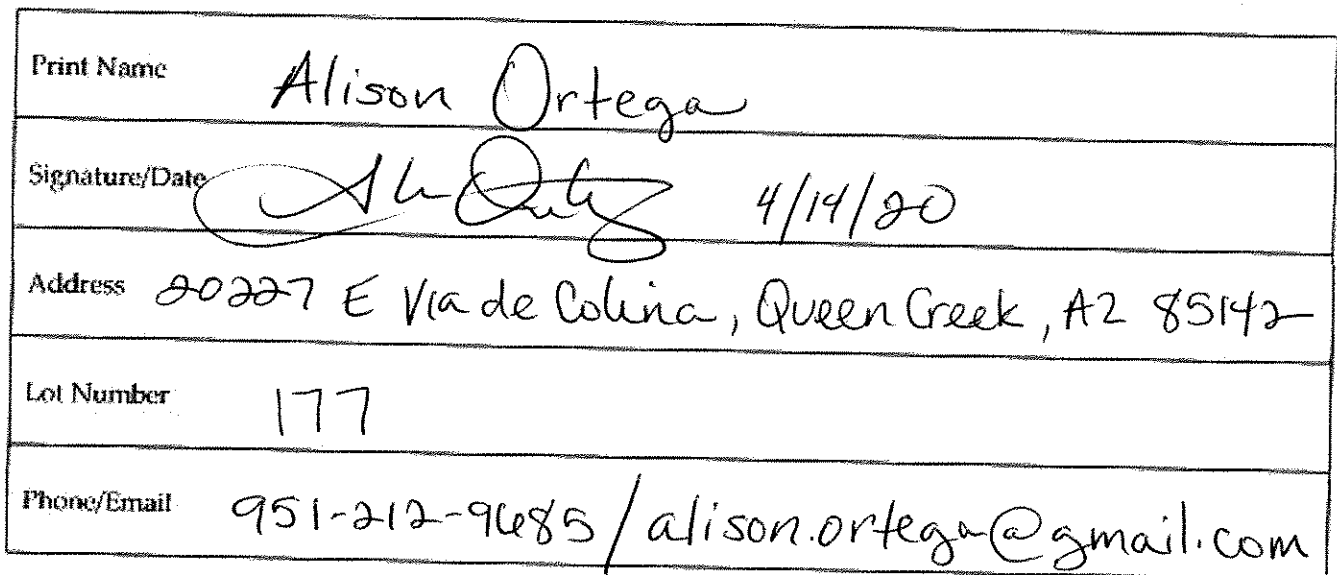 Print Name Alison Ortega
Signature/Date 4/14/20
Address 20227 E Via de Colina, Queen Creek, AZ 85142
Lot Number 177
Phone/Email 951-212-9685 / alison.ortega@gmail.com